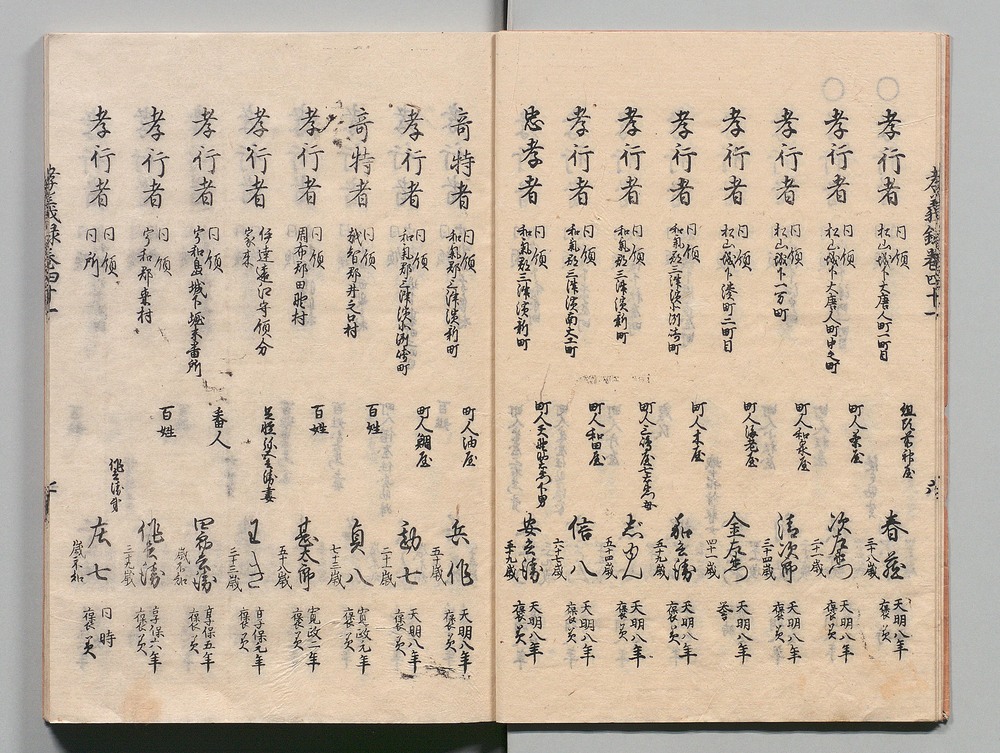 孝義録巻四十一
○
孝行者
同領
松山城下大唐人町一町目
春蔵
三十八歳
天明八年
褒美
○
孝行者
同領
松山城下大唐人町中之町
町人
二十一歳
天明八年
褒美
孝行者
同領
松山城下一万町
町人和泉屋
清次郎
三十四歳
天明八年
褒美
孝行者
同領
松山城下湊町二町目
町人海老屋
金左衛門
四十一歳
天明八年
孝行者
同領
和気郡三津濱
町人
五十九歳
天明八年
褒美
孝行者
同領
和気郡三津濱新町
五十四歳
天明八年
褒美
孝行者
同領
和気郡三津濱南大工町
町人和田屋
信八
六十七歳
天明八年
褒美
忠孝者
同領
和気郡三津濱新町
安兵衛
天明八年
褒美
奇特者
同領
和気郡三津濱新町
町人油屋
兵作
五十歳
天明八年
褒美
孝行者
同領
和気郡三津濱
町人鯛屋
勘七
二十一歳
天明八年
褒美
奇特者
同領
越智郡井之口村
百姓
貞八
七十三歳
寛政元年
褒美
孝行者
同領
周布郡田野村
百姓
甚太郎
五十八歳
寛政二年
褒美
孝行者
伊達遠江守領分
家来
二十三歳
享保元年
褒美
孝行者
同領
宇和島城下堀末番所
番人
四郎兵衛
歳不知
享保五年
褒美
孝行者
同領
宇和郡
百姓
作兵衛
三十九歳
享保六年
褒美
孝行者
同領
同所
作兵衛弟
庄七
歳不知
同時
褒美
孝義録巻四十一